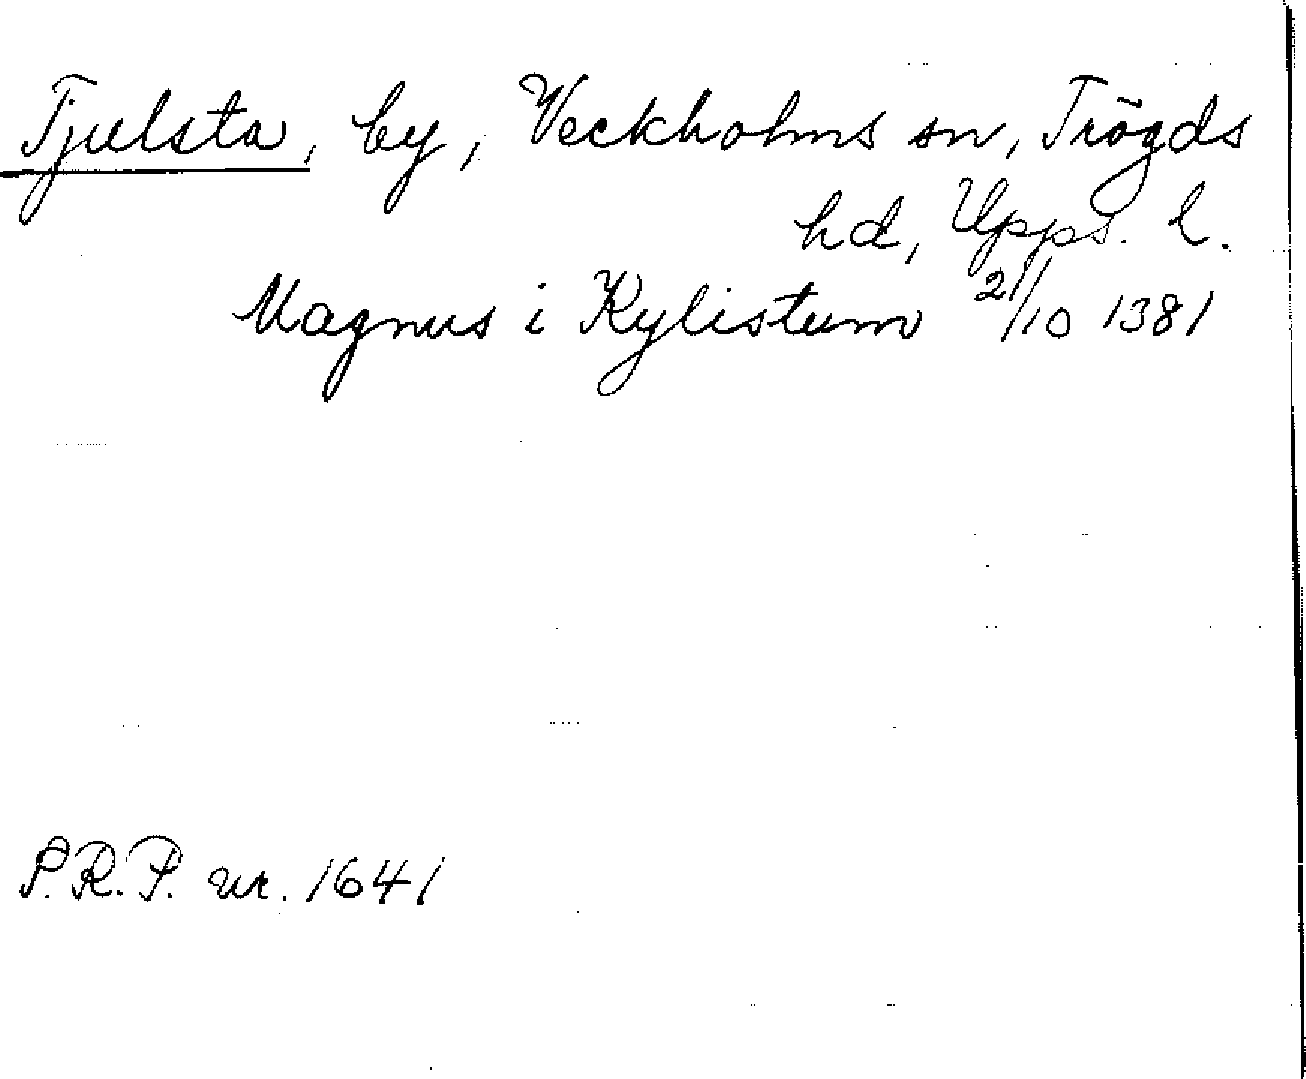 Tjulsta, by, Veckholms sn, Trögds
hd, Upps. l.
Magnus i Kylistum 21/10 1381
P.R.P. nr. 1641